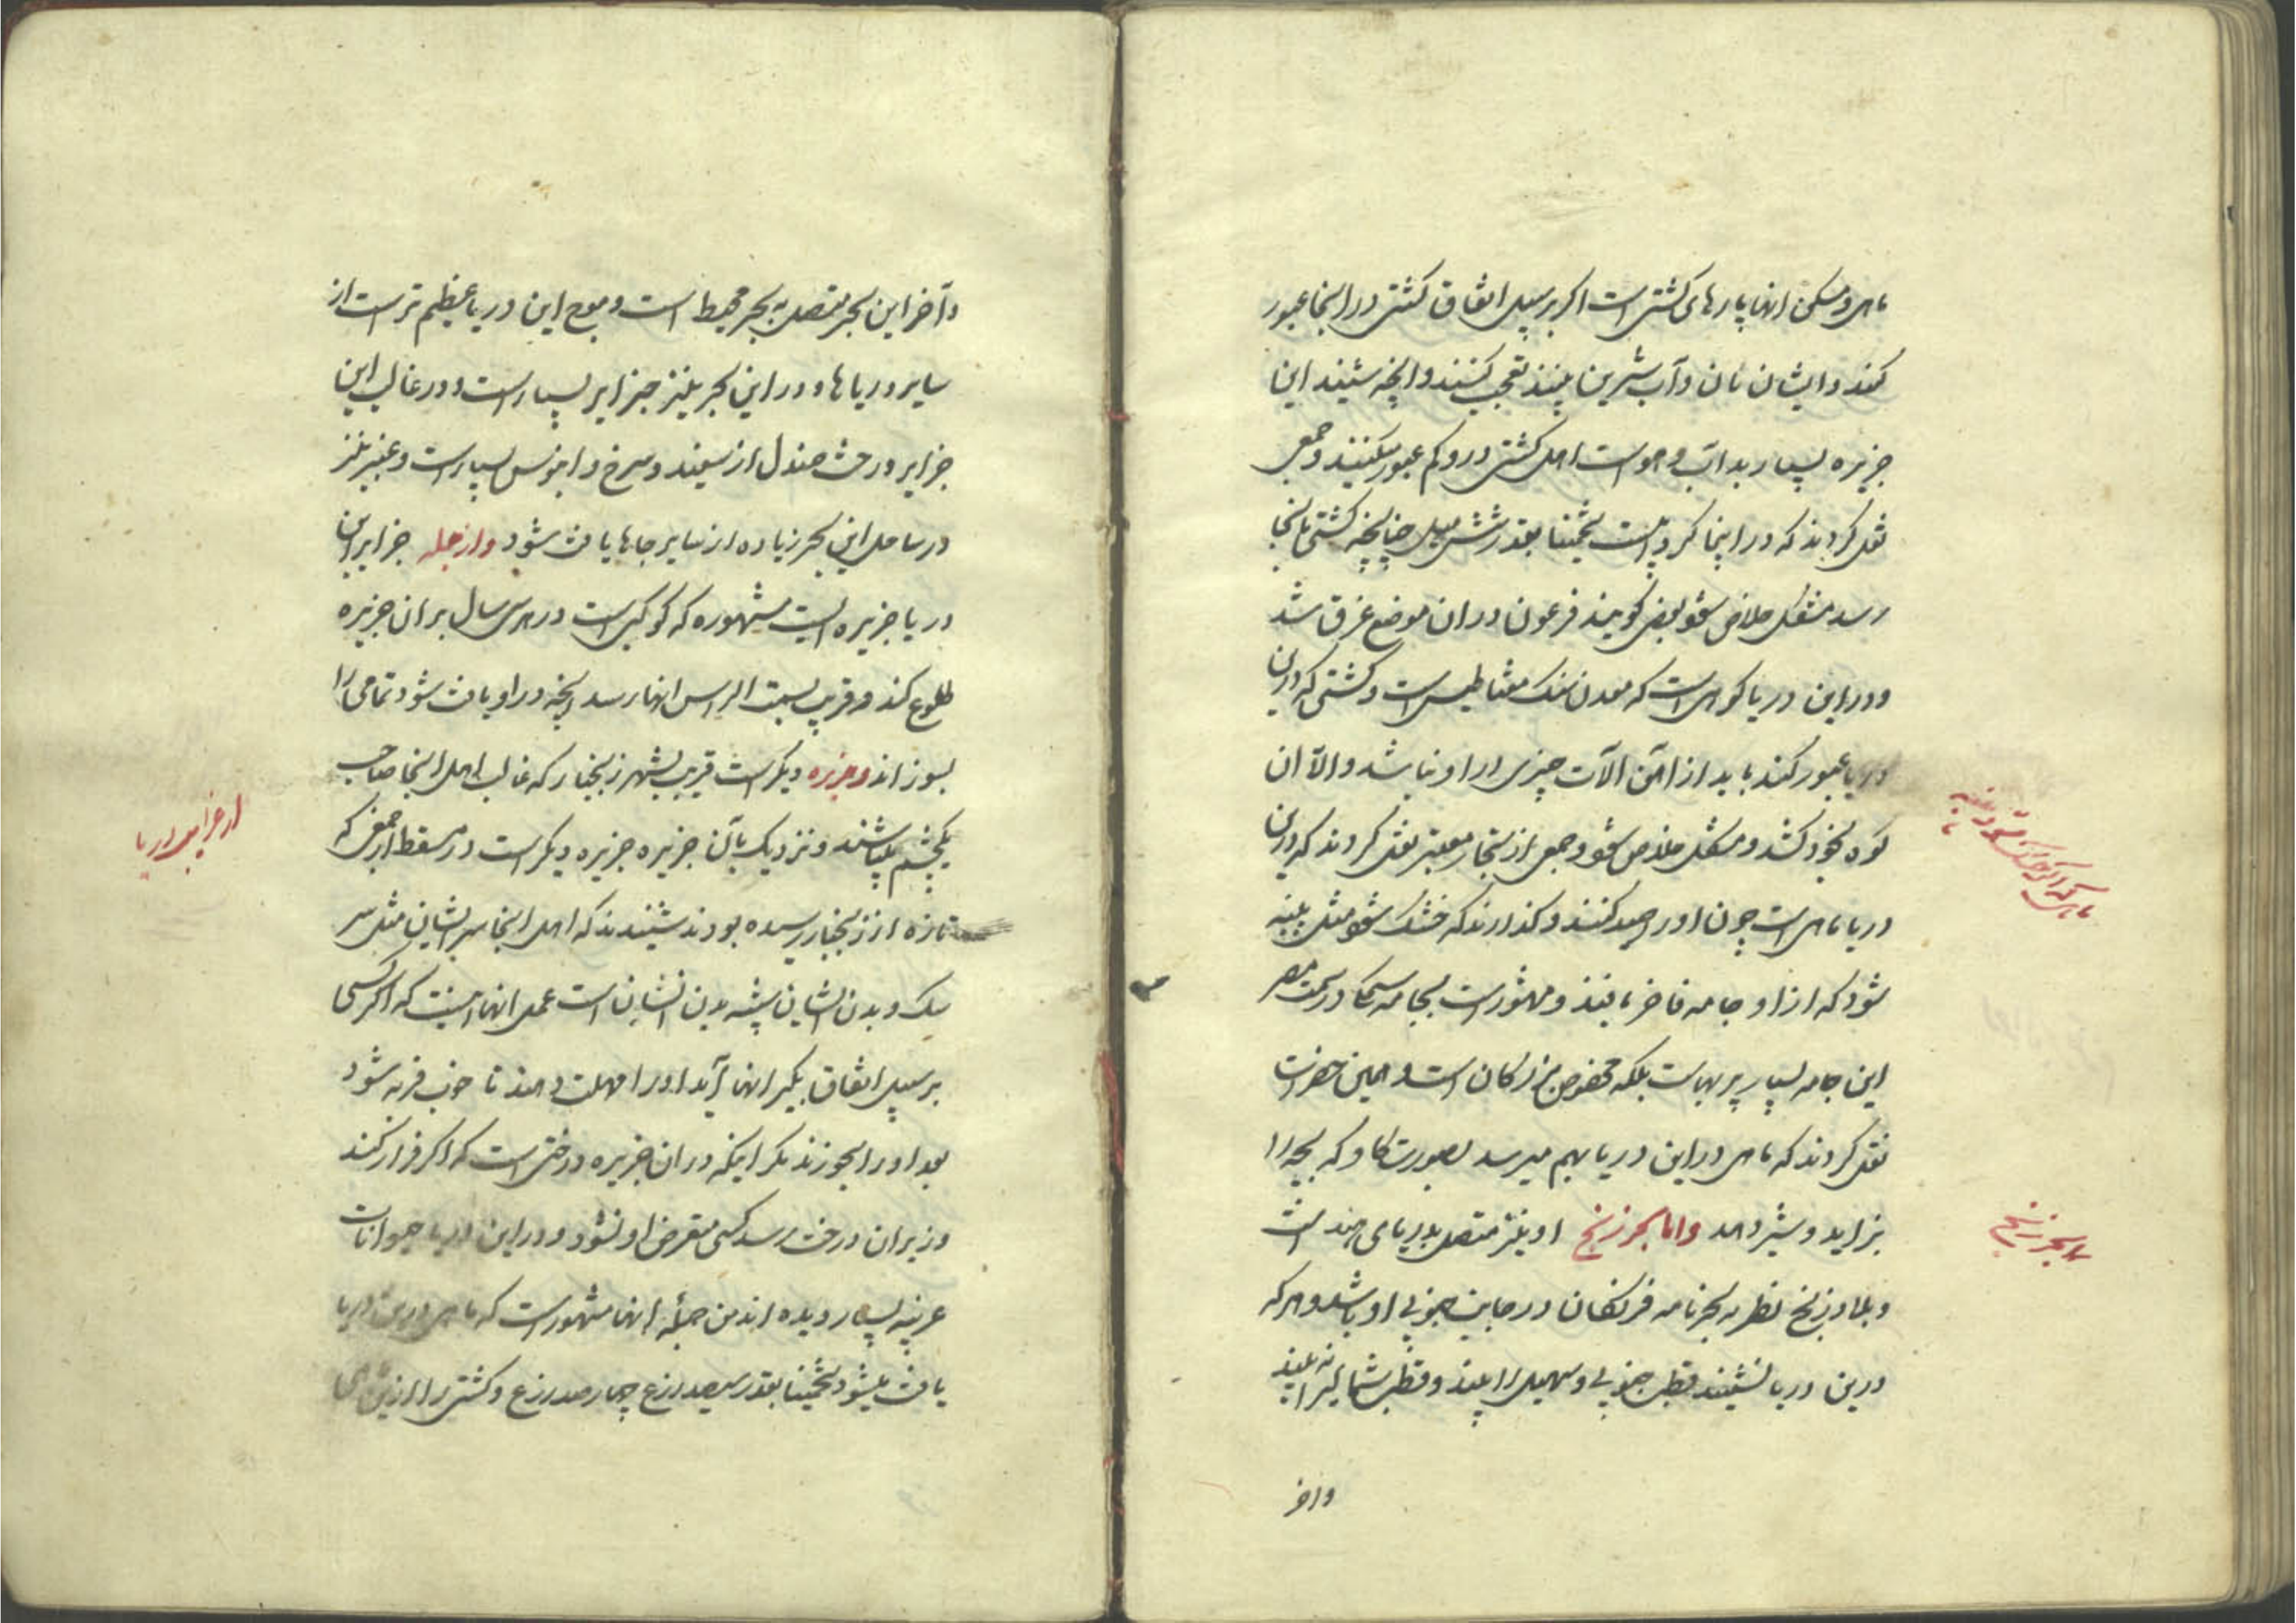 ماهی و مسکن انها پارهای کشتی است اکر بر سبیل اتفاق کشتی در اینجا عبور
کند و ایشان نان و آب شیرین بینند تعجب کنند و انچه شنیدند این
جزیره بسیار بد آب و هواست اهل کشتی درو کم عبور میکنند و جمعی
نقل کردند که در اینجا کردابیست تخمینا بقدر شش میل چنانچه کشتی بانجا
رسد مشکل خلاص شود بعضی کویند فرعون در ان موضع غرق شد
و در این دریا کوهی است که معدن سنک مقناطیس است و کشتی که درین
دریا عبور کند باید از آهن آلات چیزی در او نباشد و الا آن
کوه بخود کشد و مشکل خلاص شود و جمعی از تجار معتبر نقل کردند که درین
دریا ماهی است چون او را صید کنند و کذارند که خشک شود مثل پنبه
شود که از او جامه فاخر بافند و مشهور است بجامه سمکا در سمت مصر
این جامه بسیار پر بهاست بلکه مخصوص بزرکان است و همین حضرات
نقل کردند که ماهی در این دریا بهم میرسد بصورت کاو که بچه را
بزاید و شیر دهد و اما بحر زنج او نیز متصل بدریای هند است
و بلاد زنج نظر به بحرنامه فرنکان در جانب جنوبی او باشد و هر که
درین دریا نشیند قطب جنوبی و سهیل را بیند و قطب شمالی را نه بیند
واخر
ماهی که
بحر زنج
و آخر این بحر متصل به بحر محیط است و موج این دریا عظیم تر است از
سایر دریاها و در این بحر نیز جزایر بسیار است و در غالب این
جزایر درخت صندل از سفید و سرخ و ابنوس بسیار است و عنبر نیز
در ساحل این بحر زیاده از سایر جاها یافت شود و از جمله جزایر این
دریا جزیره ایست مشهوره که کوکبی است در هر سی سال بر ان جزیره
طلوع کند و قریب بسمت الراس انها رسد و انچه در او یافت شود تمامی را
بسوزاند و جزیره دیکر است قریب بشهر زنجبار که غالب اهل اینجا صاحب
یکچشم میباشند و نزدیک بآن جزیره جزیره دیکر است در مسقط از جمعی که
تازه از زنجبار رسیده بودند شنیدند که اهل اینجا سر ایشان مثل سر
سک و بدن ایشان شبیه بدن انسان است عمل انها اینست که اکر کسی
بر سبیل اتفاق بکیر انها آید او را مهلت دهند تا خوب فربه شود
بعد او را بخورند مکر اینکه در ان جزیره درختی است که اکر فرار کند
و زیر ان درخت رسد کسی متعرض او نشود و در این دریا حیوانات
غریبه بسیار دیده اند من جمله انها مشهور است که ماهی درین دریا
یافت میشود تخمینا بقدر سیصد زرع چهار صد زرع و کشتی را از این ماهی
از غرایب دریا